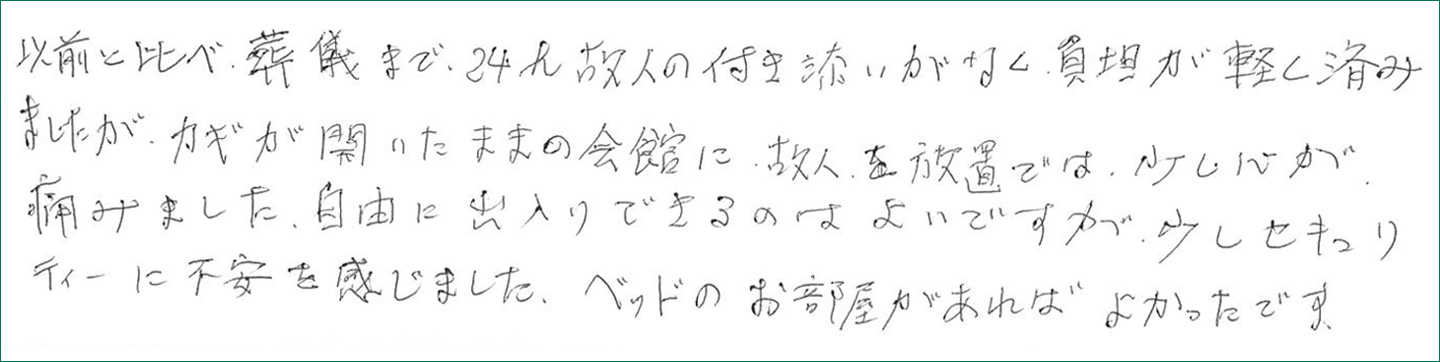 以前と比べ、葬儀まで、24h故人の付き添いがなく、負担が軽く済み
ましたが、カギが開いたままの会館に、故人を放置では、少し心が
痛みました、自由に出入りできるのはよいですが、少しセキュリ
ティーに不安を感じました、ベッドのお部屋があればよかったです、